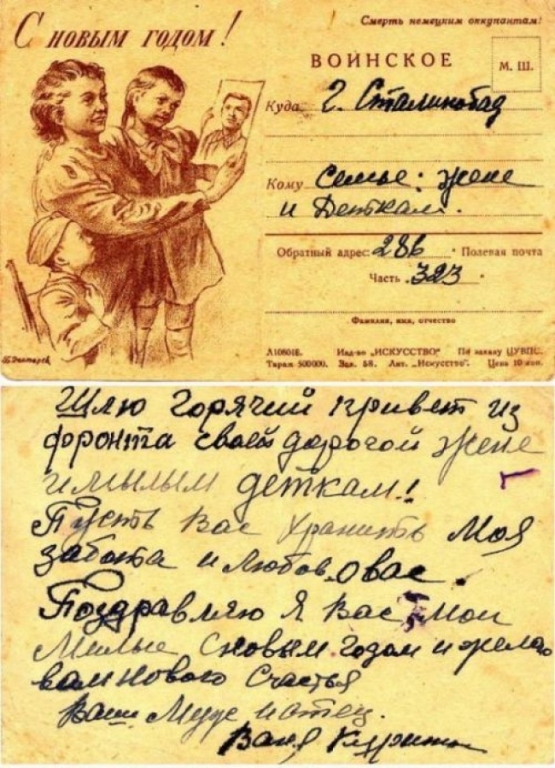 С новым годом!
Смерть немецким оккупантам!
ВОИНСКОЕ
М. Ш.
Куда г. Сталинобад
Кому Семье: жене
и Деткам.
Обратный адрес: 286 Полевая почта
Часть 323
Фамилия, имя, отчество
А108018. Изд-во „ИСКУССТВО“ По заказу ЦУВПС.
Тираж 500000. Зак. 58. Лит. „Искусство“. Цена 10 коп.
Шлю горячий привет из
фронта своей дорогой жене
и милым деткам!
Пусть вас хранить моя
забота и любов о вас.
Поздравляю я вас мои
милые с новым годом и желаю
вам нового счастья
Ваш муж и отец.
Ваня